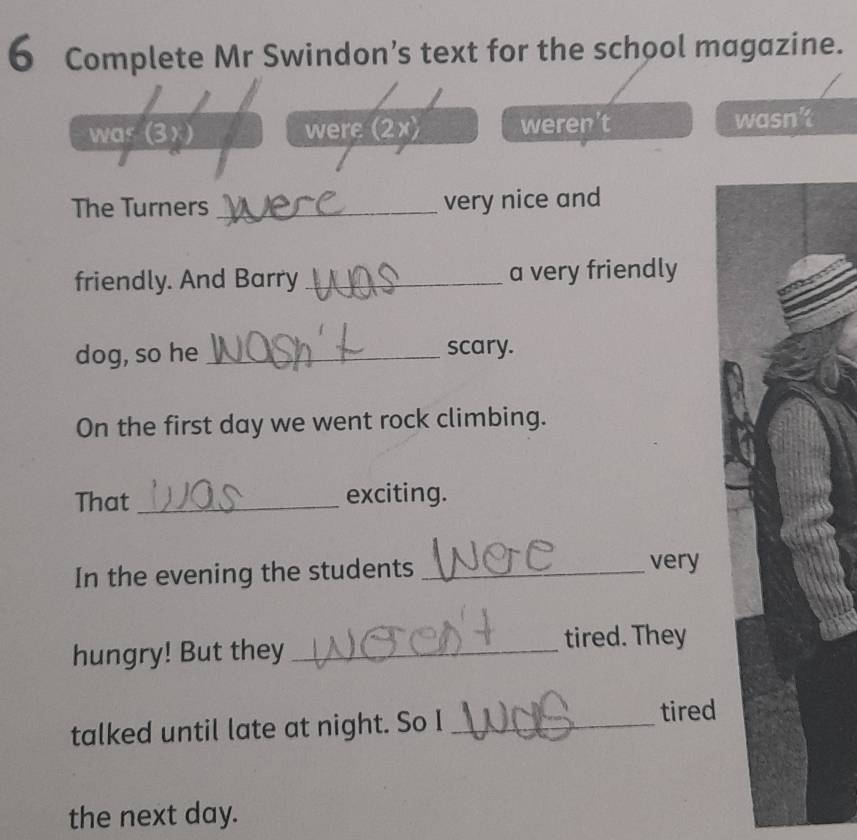 6 Complete Mr Swindon's text for the school magazine.
was (3x) were (2x) weren't wasn't
The Turners were very nice and
friendly. And Barry was a very friendly
dog, so he wasn't scary.
On the first day we went rock climbing.
That was exciting.
In the evening the students were very
hungry! But they weren't tired. They
talked until late at night. So I was tired
the next day.